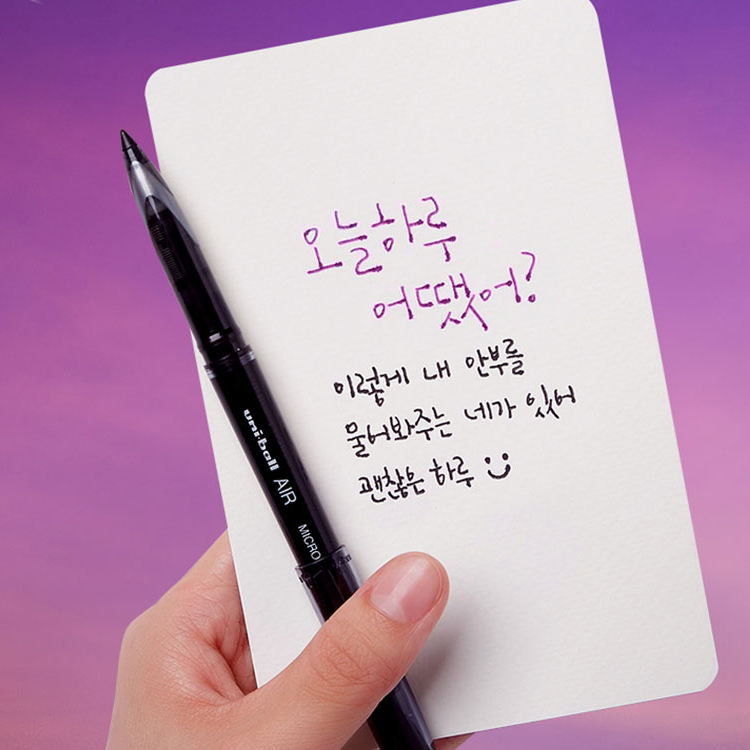 오늘하루
어땠어?
이렇게 내 안부를
물어봐주는 네가 있어
괜찮은 하루
uni-ball AIR MICRO